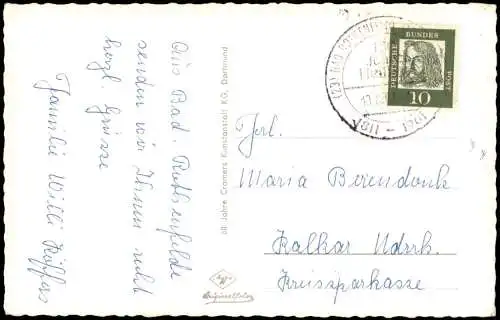 Aus Bad-Rothenfelde
senden wir Ihnen recht
herzl. Grüsse
Familie Willi Küppers
60 Jahre Cramers Kunstanstalt KG, Dortmund
DEUTSCHE BUNDESPOST
10
1881 - 1961
Frl.
Maria Berendonk
Kalkar Ndrrh.
Kreissparkasse